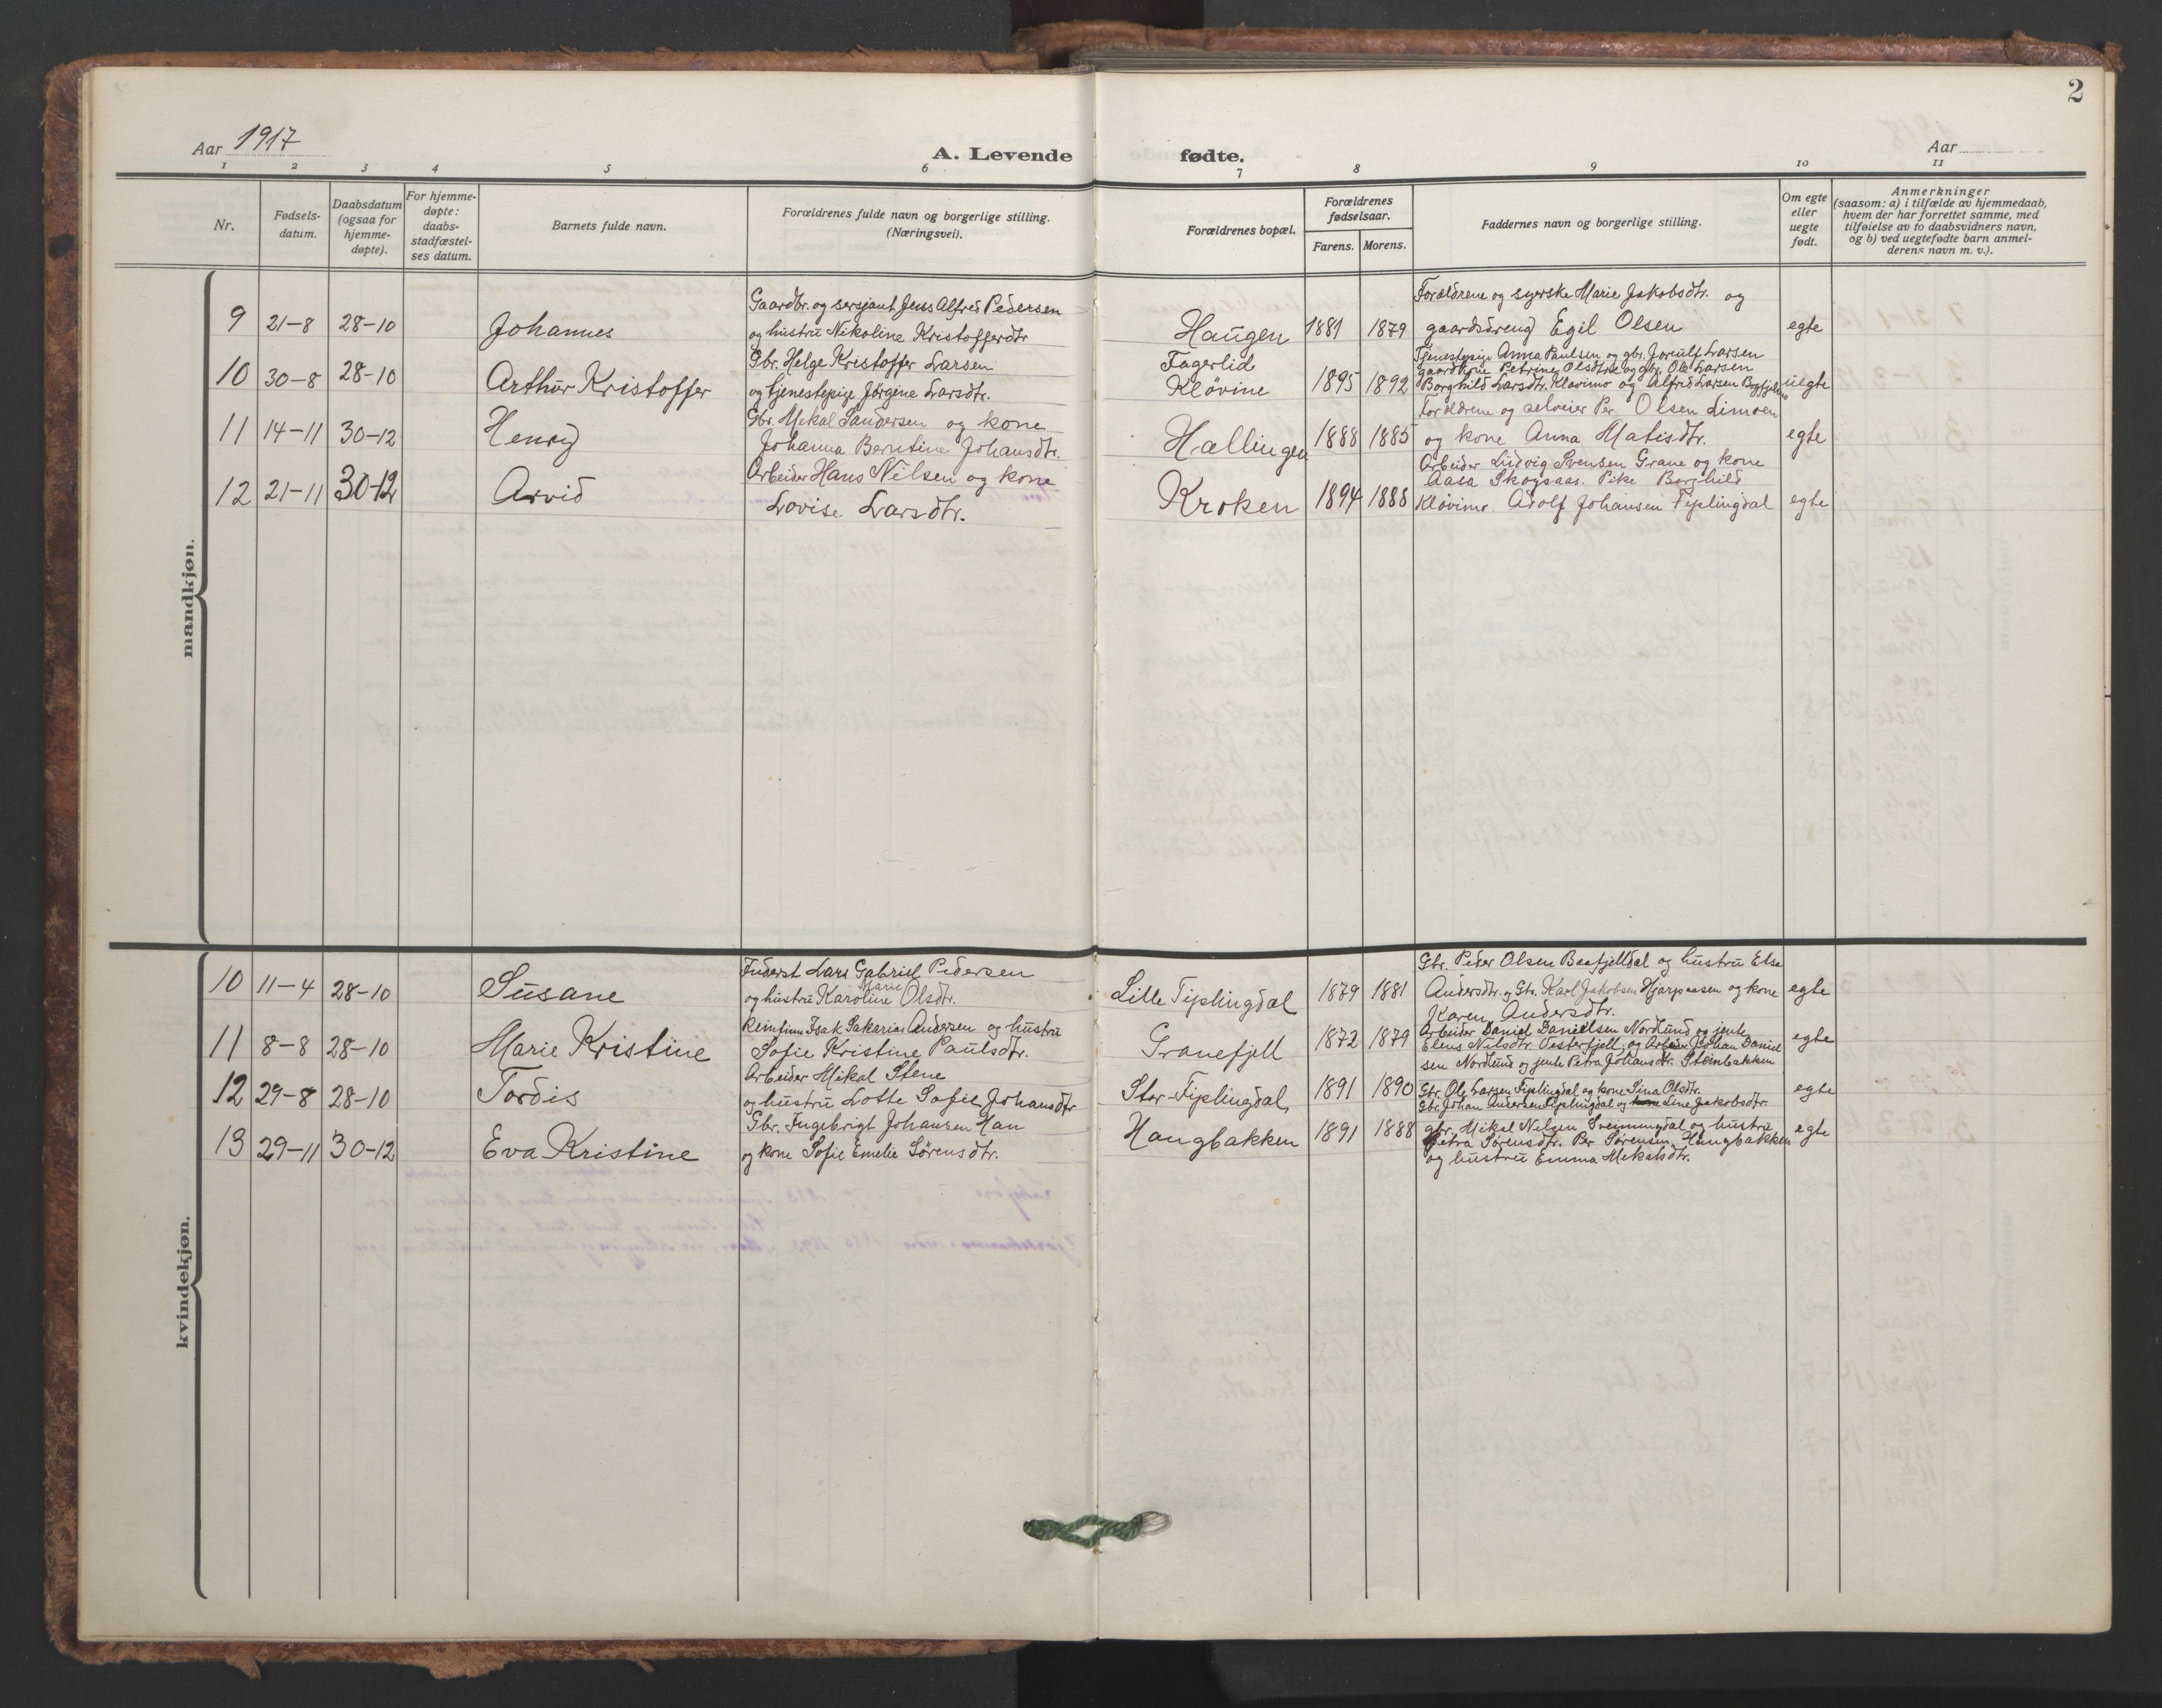 2
Aar 1917
A. Levende fødte.
Aar
1 2 3 4 5 6 7 8 9 10 11
Nr.
Fødsels-
datum.
Daabsdatum
(ogsaa for
hjemme-
døpte).
For hjemme-
døpte:
daabs-
stadfæstel-
ses datum.
Barnets fulde navn.
Forældrenes fulde navn og borgerlige stilling.
(Næringsvei).
Forældrenes bopæl.
Forældrenes
fødselsaar.
Farens. Morens.
Faddernes navn og borgerlige stilling.
Om egte
eller
uegte
født.
Anmerkninger
(saasom: a) i tilfælde av hjemmedaab,
hvem der har forrettet samme, med
tilføielse av to daabsvidners navn,
og b) ved uegtefødte barn anmel-
derens navn m. v.).
mandkjøn.
9 21-8 28-10 Johannes
Gaardbr. og sersjant Jens Alfred Pedersen
og hustru Nikoline Kristofferdtr
Haugen 1881 1879
Forældrene og syerske Marie Jakobsdtr. og
gaardsdreng Egil Olsen
egte
10 30-8 28-10 Arthur Kristoffer
Gbr. Helge Kristoffer Larsen
og tjenestepige Jørgine Larsdtr.
Fagerlid
Kløvine 1895 1892
Tjenestepige Anna Paulsen og gbr. Joraulf Larsen
gaardkone Petrine Olsdtr. og gbr. Ole Larsen
Borghild Larsdtr. Kløvimo og Alfred Larsen
uegte
11 14-11 30-12 Henry
Gbr. Mekal Sandersen og kone
Johanna Berntine Johansdtr.
Hællingen 1888 1885
Forældrene og selveier Per Olsen Limoen
og kone Anna Matisdtr.
egte
12 21-11 30-12 Arvid
Arbeider Hans Nilsen og kone
Lovise Larsdtr.
Kroken 1894 1888
Arbeider Ludvig Svensen Grane og kone
Aasa Skogsaas. Pike Borghild
Kløvimo Adolf Johansen Fiplingdal
egte
kvindekjøn.
10 11-4 28-10 Susane
Inderst Lars Gabriel Pedersen
og hustru Karoline Marie Olsdtr.
Lille Fiplingdal 1879 1881
Gbr. Peder Olsen Bæafjelldal og hustru Else
Andersdtr. og Gbr. Karl Jakobsen Hjarpaasen og kone
Karen Andersdtr.
egte
11 8-8 28-10 Marie Kristine
Reinfinn Isak Sakarias Andersen og hustru
Sofie Kristine Paulsdtr.
Granefjell 1872 1879
Arbeider Daniel Danielsen Nordlund og jente
Elens Nilsdtr. Vesterfjell, og Arbeider Johan Daniel
sen Nordlund og jente Petra Johansdtr. Steinbakken
egte
12 29-8 28-10 Tordis
Arbeider Mikal Stene
og hustru Lotte Sofie Johansdtr
Stor-Fiplingdal 1891 1890
Gbr. Ole Larsen Fiplingdal og kone Sina Olsdtr.
Gbr. Johan Andersen Fiplingdal og Line Jakobsdtr.
egte
13 29-11 30-12 Eva Kristine
Gbr. Ingebrigt Johansen Han
og kone Sofie Emelie Sørensdtr.
Haugbakken 1891 1888
gbr. Mikal Nilsen Svenningdal og hustru
Petra Sørensdtr. Per Sørensen Haugbakken
og hustru Emma Mekalsdtr.
egte